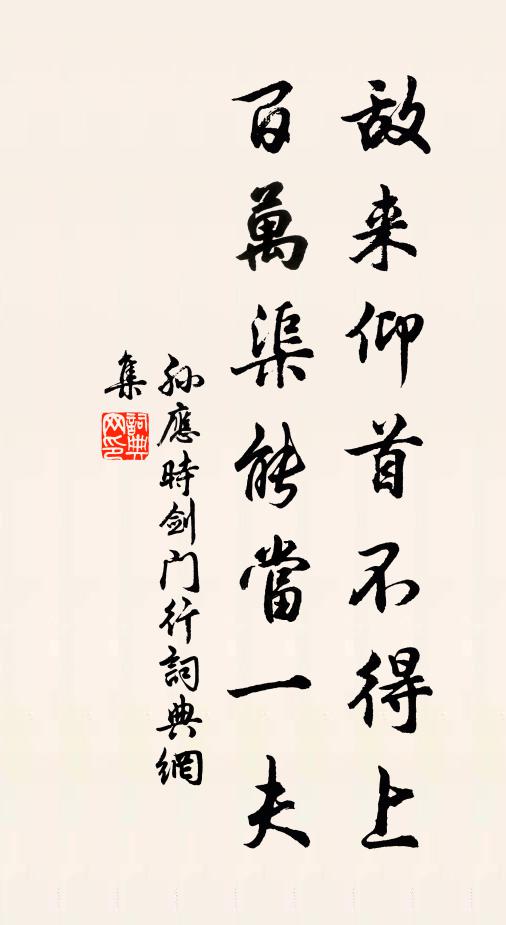 敌来仰首不得上
百萬渠能當一夫
孙應時劍门行詞典網
集
詞典
网印